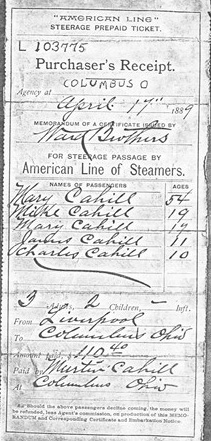 "AMERICAN LINE"
STEERAGE PREPAID TICKET.
L 103775
Purchaser's Receipt.
COLUMBUS O
Agency at
April 17" 1889
MEMORANDUM OF A CERTIFICATE ISSUED BY
Ward Brothers
FOR STEERAGE PASSAGE BY
American Line of Steamers.
NAMES OF PASSENGERS AGES
Mary Cahill 54
Mike Cahill 19
Mary Cahill 17
James Cahill 11
Charles Cahill 10
3 Ads. 2 Children, - Inft.
From Liverpool
To Columbus Ohio
Amount paid, $ 110.40
Paid by Martin Cahill
At Columbus Ohio
Should the above passengers decline coming, the money will
be refunded, less Agent's commission, on production of this MEMO-
RANDUM and Corresponding Certificate and Embarkation Notice.